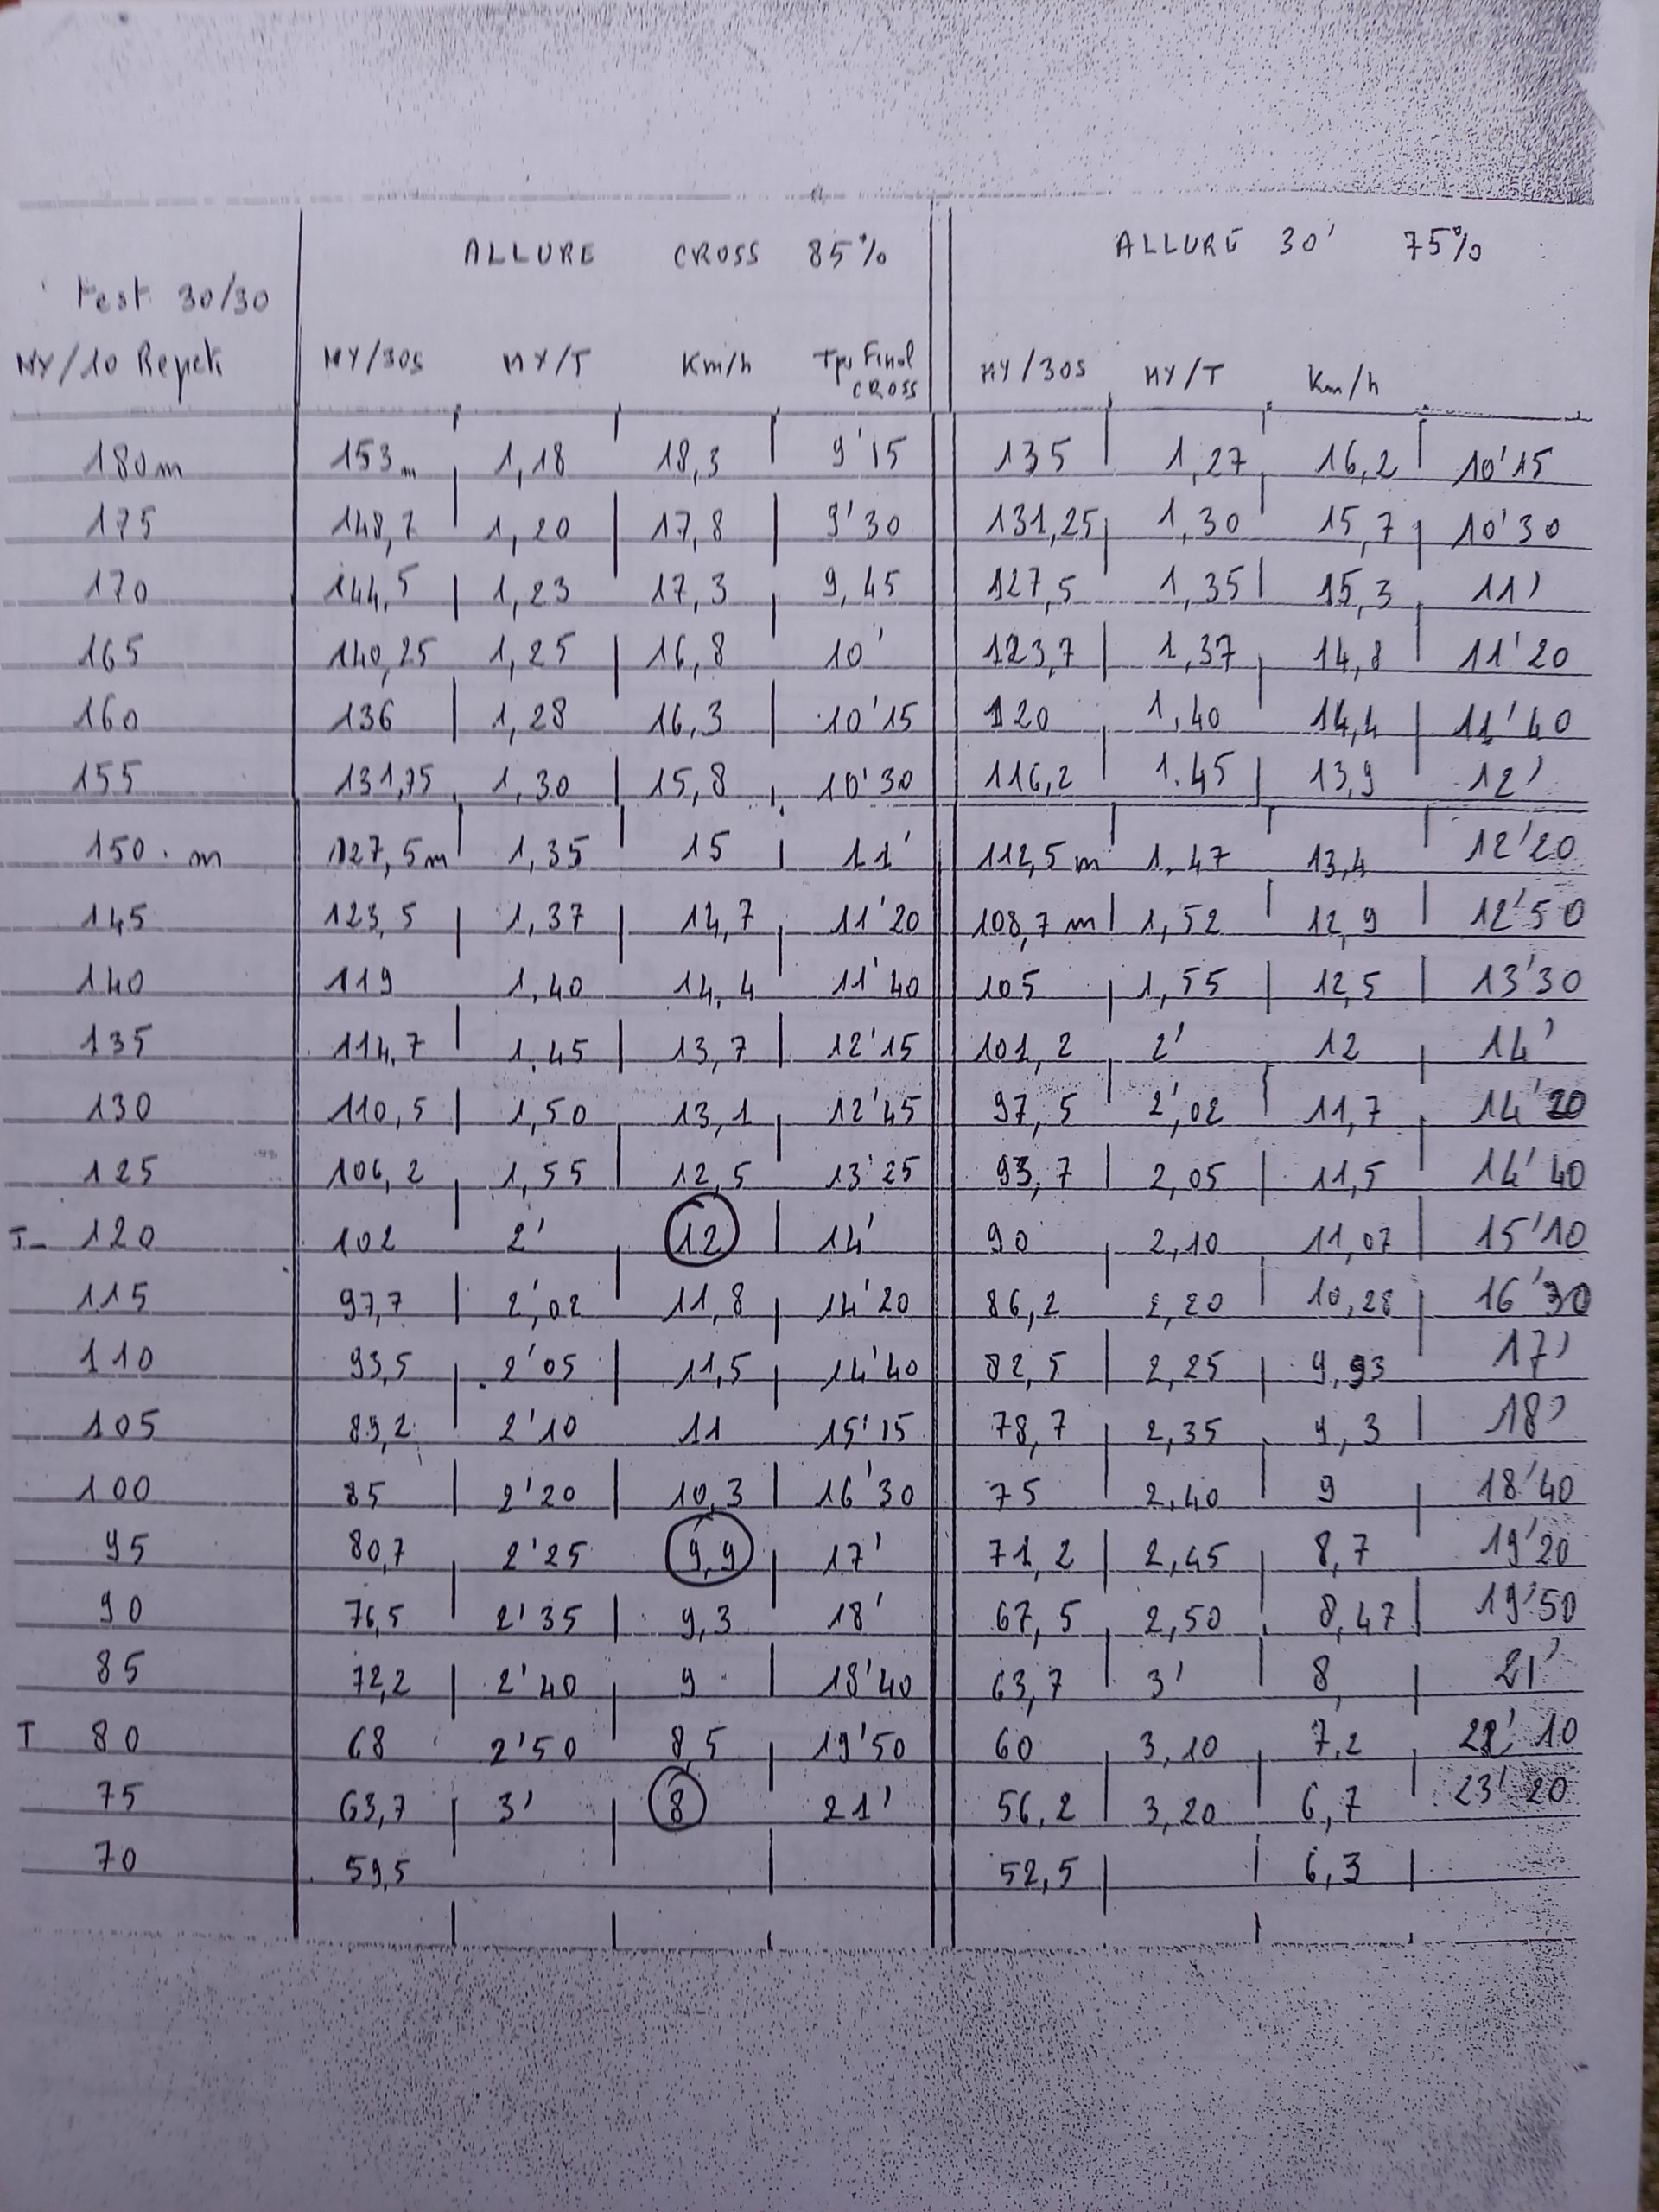 ALLURE CROSS 85% ALLURE 30' 75%
test 30/30
MY/10 Repet MY/30s MY/T Km/h Tps Final CROSS MY/30s MY/T Km/h
180m 153m 1,18 18,3 9'15 135 1,27 16,2 10'15
175 148,7 1,20 17,8 9'30 131,25 1,30 15,7 10'30
170 144,5 1,23 17,3 9,45 127,5 1,35 15,3 11'
165 140,25 1,25 16,8 10' 123,7 1,37 14,8 11'20
160 136 1,28 16,3 10'15 120 1,40 14,4 11'40
155 131,75 1,30 15,8 10'30 116,2 1.45 13,9 12'
150 m 127,5m 1,35 15 11' 112,5m 1.47 13,4 12'20
145 123,5 1,37 14,7 11'20 108,7m 1,52 12,9 12'50
140 119 1,40 14,4 11'40 105 1,55 12,5 13'30
135 114,7 1.45 13,7 12'15 101,2 2' 12 14'
130 110,5 1,50 13,1 12'45 97,5 2',02 11,7 14'20
125 106,2 1,55 12,5 13'25 93,7 2,05 11,5 14'40
T- 120 102 2' 12 14' 90 2,10 11,07 15'10
115 97,7 2',02 11,8 14'20 86,2 2,20 10,28 16'30
110 93,5 2'05 11,5 14'40 82,5 2,25 9,93 17'
105 89,2 2'10 11 15'15 78,7 2,35 9,3 18'
100 85 2'20 10,3 16'30 75 2,40 9 18'40
95 80,7 2'25 9,9 17' 71,2 2,45 8,7 19'20
90 76,5 2'35 9,3 18' 67,5 2,50 8,47 19'50
85 72,2 2'40 9 18'40 63,7 3' 8, 21'
T 80 68 2'50 8,5 19'50 60 3,10 7,2 22'10
75 63,7 3' 8 21' 56,2 3,20 6,7 23'20
70 59,5 52,5 6,3